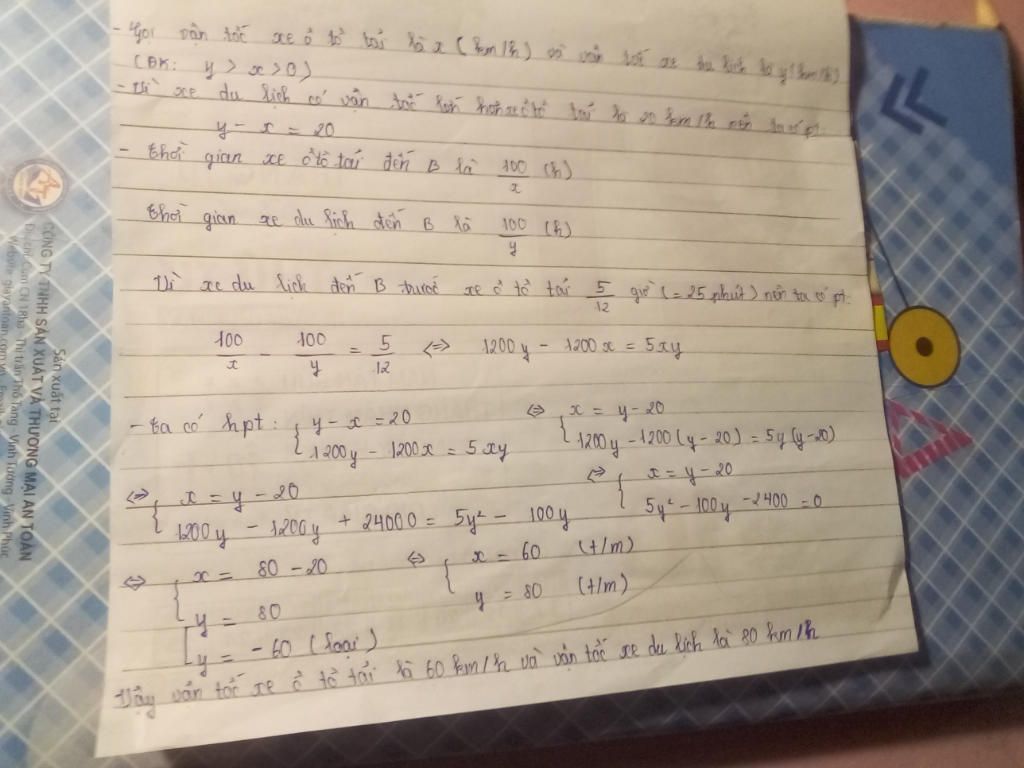 - Gọi vận tốc xe ô tô tải là x (km/h) và vận tốc xe du lịch là y (km/h)
(ĐK: y > x > 0)
- Vì xe du lịch có vận tốc lớn hơn xe ô tô tải là 20 km/h nên ta có pt:
y - x = 20
- thời gian xe ô tô tải đến B là 100/x (h)
thời gian xe du lịch đến B là 100/y (h)
Vì xe du lịch đến B trước xe ô tô tải 5/12 giờ (= 25 phút) nên ta có pt:
100/x - 100/y = 5/12 <=> 1200y - 1200x = 5xy
- ta có hpt: { y - x = 20 <=> { x = y - 20
1200y - 1200x = 5xy 1200y - 1200(y - 20) = 5y(y - 20)
<=> { x = y - 20 <=> { x = y - 20
1200y - 1200y + 24000 = 5y² - 100y 5y² - 100y - 2400 = 0
<=> { x = 80 - 20 <=> { x = 60 (t/m)
y = 80 y = 80 (t/m)
[ y = -60 (loại)
Vậy vận tốc xe ô tô tải là 60 km/h và vận tốc xe du lịch là 80 km/h
Sản xuất tại
CÔNG TY TNHH SẢN XUẤT VÀ THƯƠNG MẠI AN TOÀN